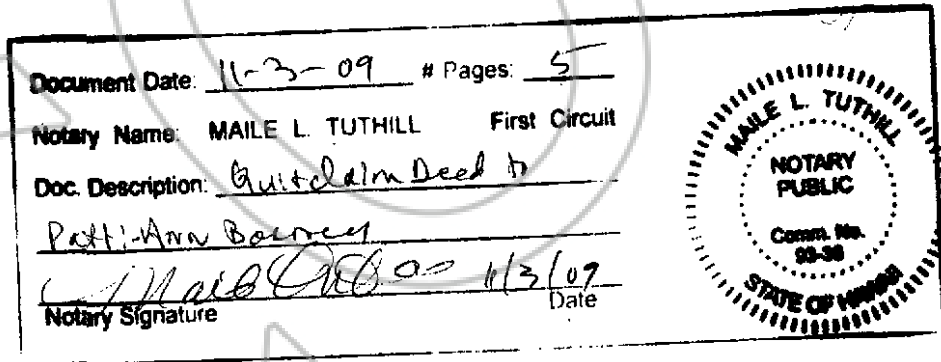 Document Date: 11-3-09 # Pages: 5
Notary Name: MAILE L. TUTHILL First Circuit
Doc. Description: Quitclaim Deed to
Patti-Ann
11/3/09
Notary Signature Date
MAILE L. TUTHILL
NOTARY
PUBLIC
Comm. No.
93-36
STATE OF HAWAII